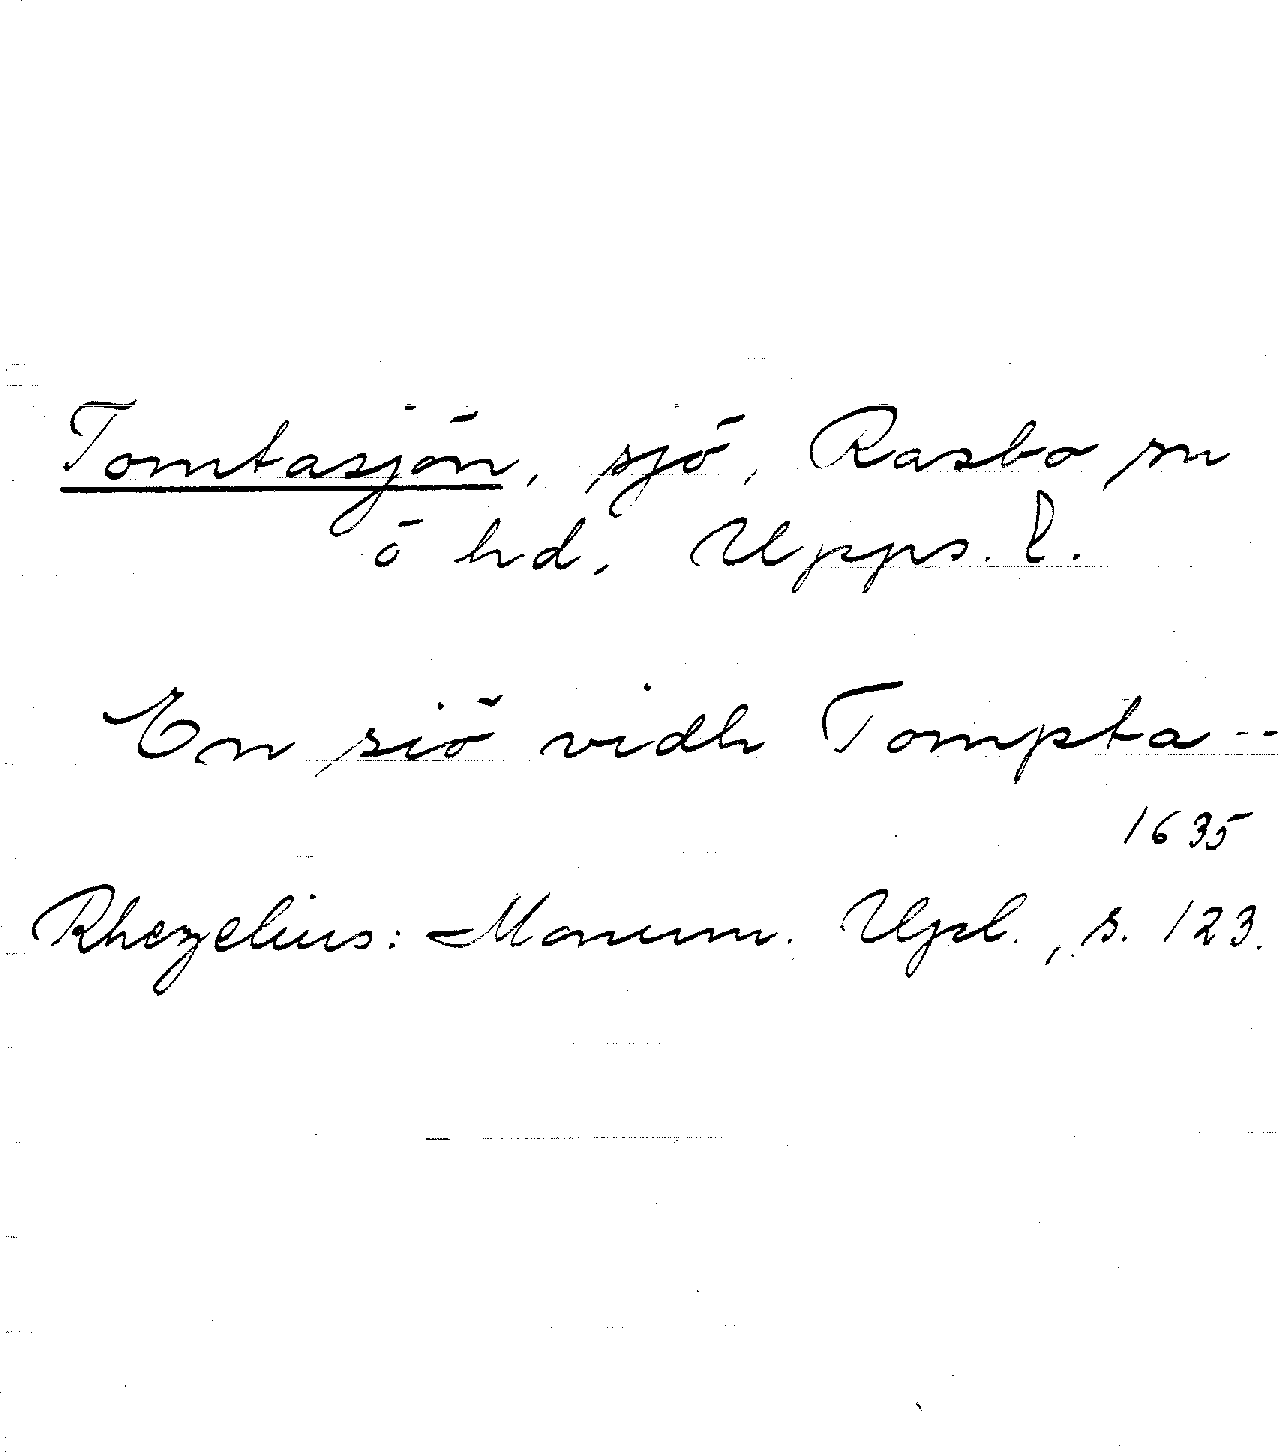 Tomtasjön, sjö, Rasbo sn
ö hd, Upps. l.
En siö vidh Tompta --
1635
Rhezelius: Monum. Upl., s. 123.